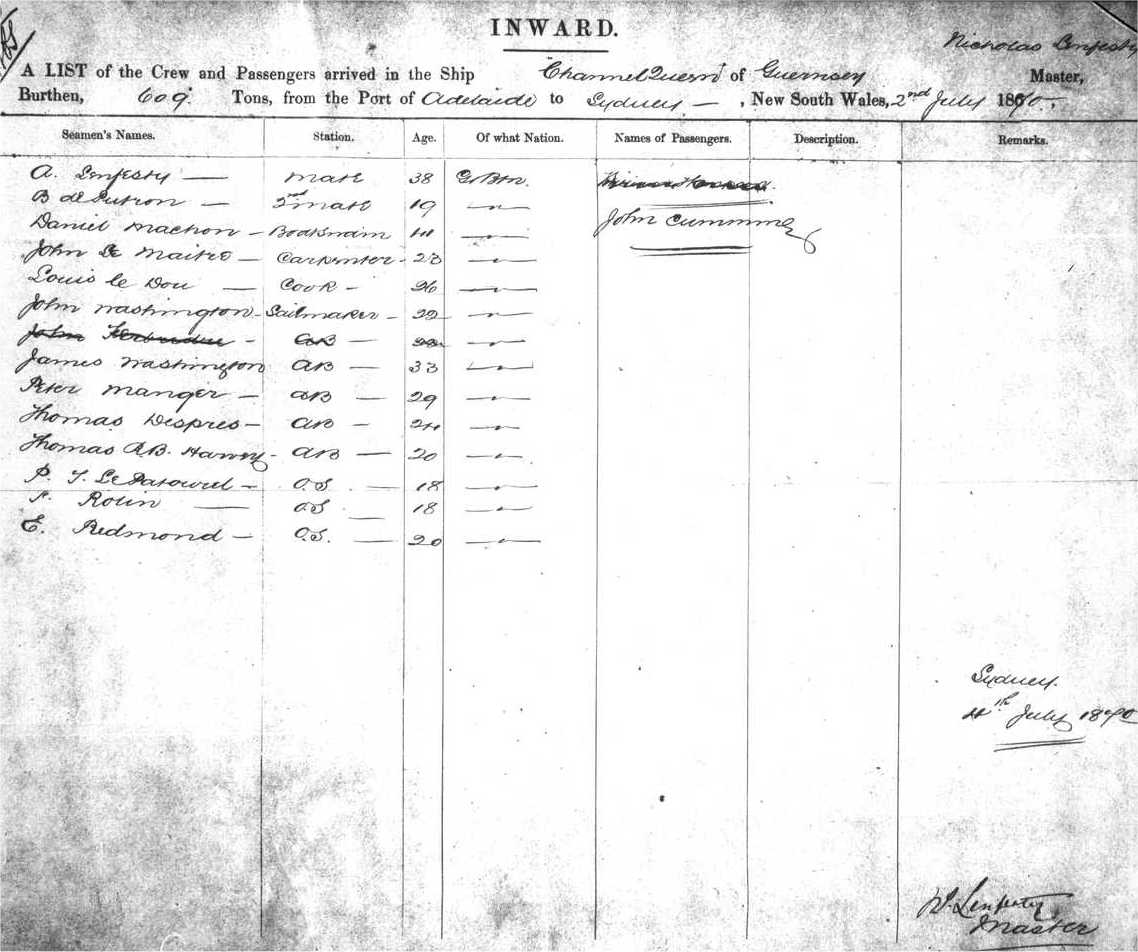 INWARD.
Nicholas Lenfesty
A LIST of the Crew and Passengers arrived in the Ship "Channel Queen" of Guernsey Master,
Burthen, 609 Tons, from the Port of Adelaide to Sydney — , New South Wales, 2nd July 1870.
Seamen's Names. Station. Age. Of what Nation. Names of Passengers. Description. Remarks.
A. Lenfesty — Mate 38 G. Btn.
B de Putron — 2nd Mate 19 — " —
John Cumming
Daniel Machon — Boatswain 41 — " —
John Le Maitre — Carpenter - 23 — " —
Louis le Dou — Cook - 26 — " —
John Washington - Sailmaker - 22 — " —
John - AB — 22 — " —
James Washington AB — 33 — " —
Peter Manger — AB — 29 — " —
Thomas Despres — AB — 24 — " —
Thomas A.B. Harvey - AB — 20 — " —
P. T. Le Patourel — O.S. — 18 — " —
Robin — O.S. — 18 — " —
E. Redmond — O.S. — 20 — " —
Sydney.
4th July 1870
N. Lenfestey
Master